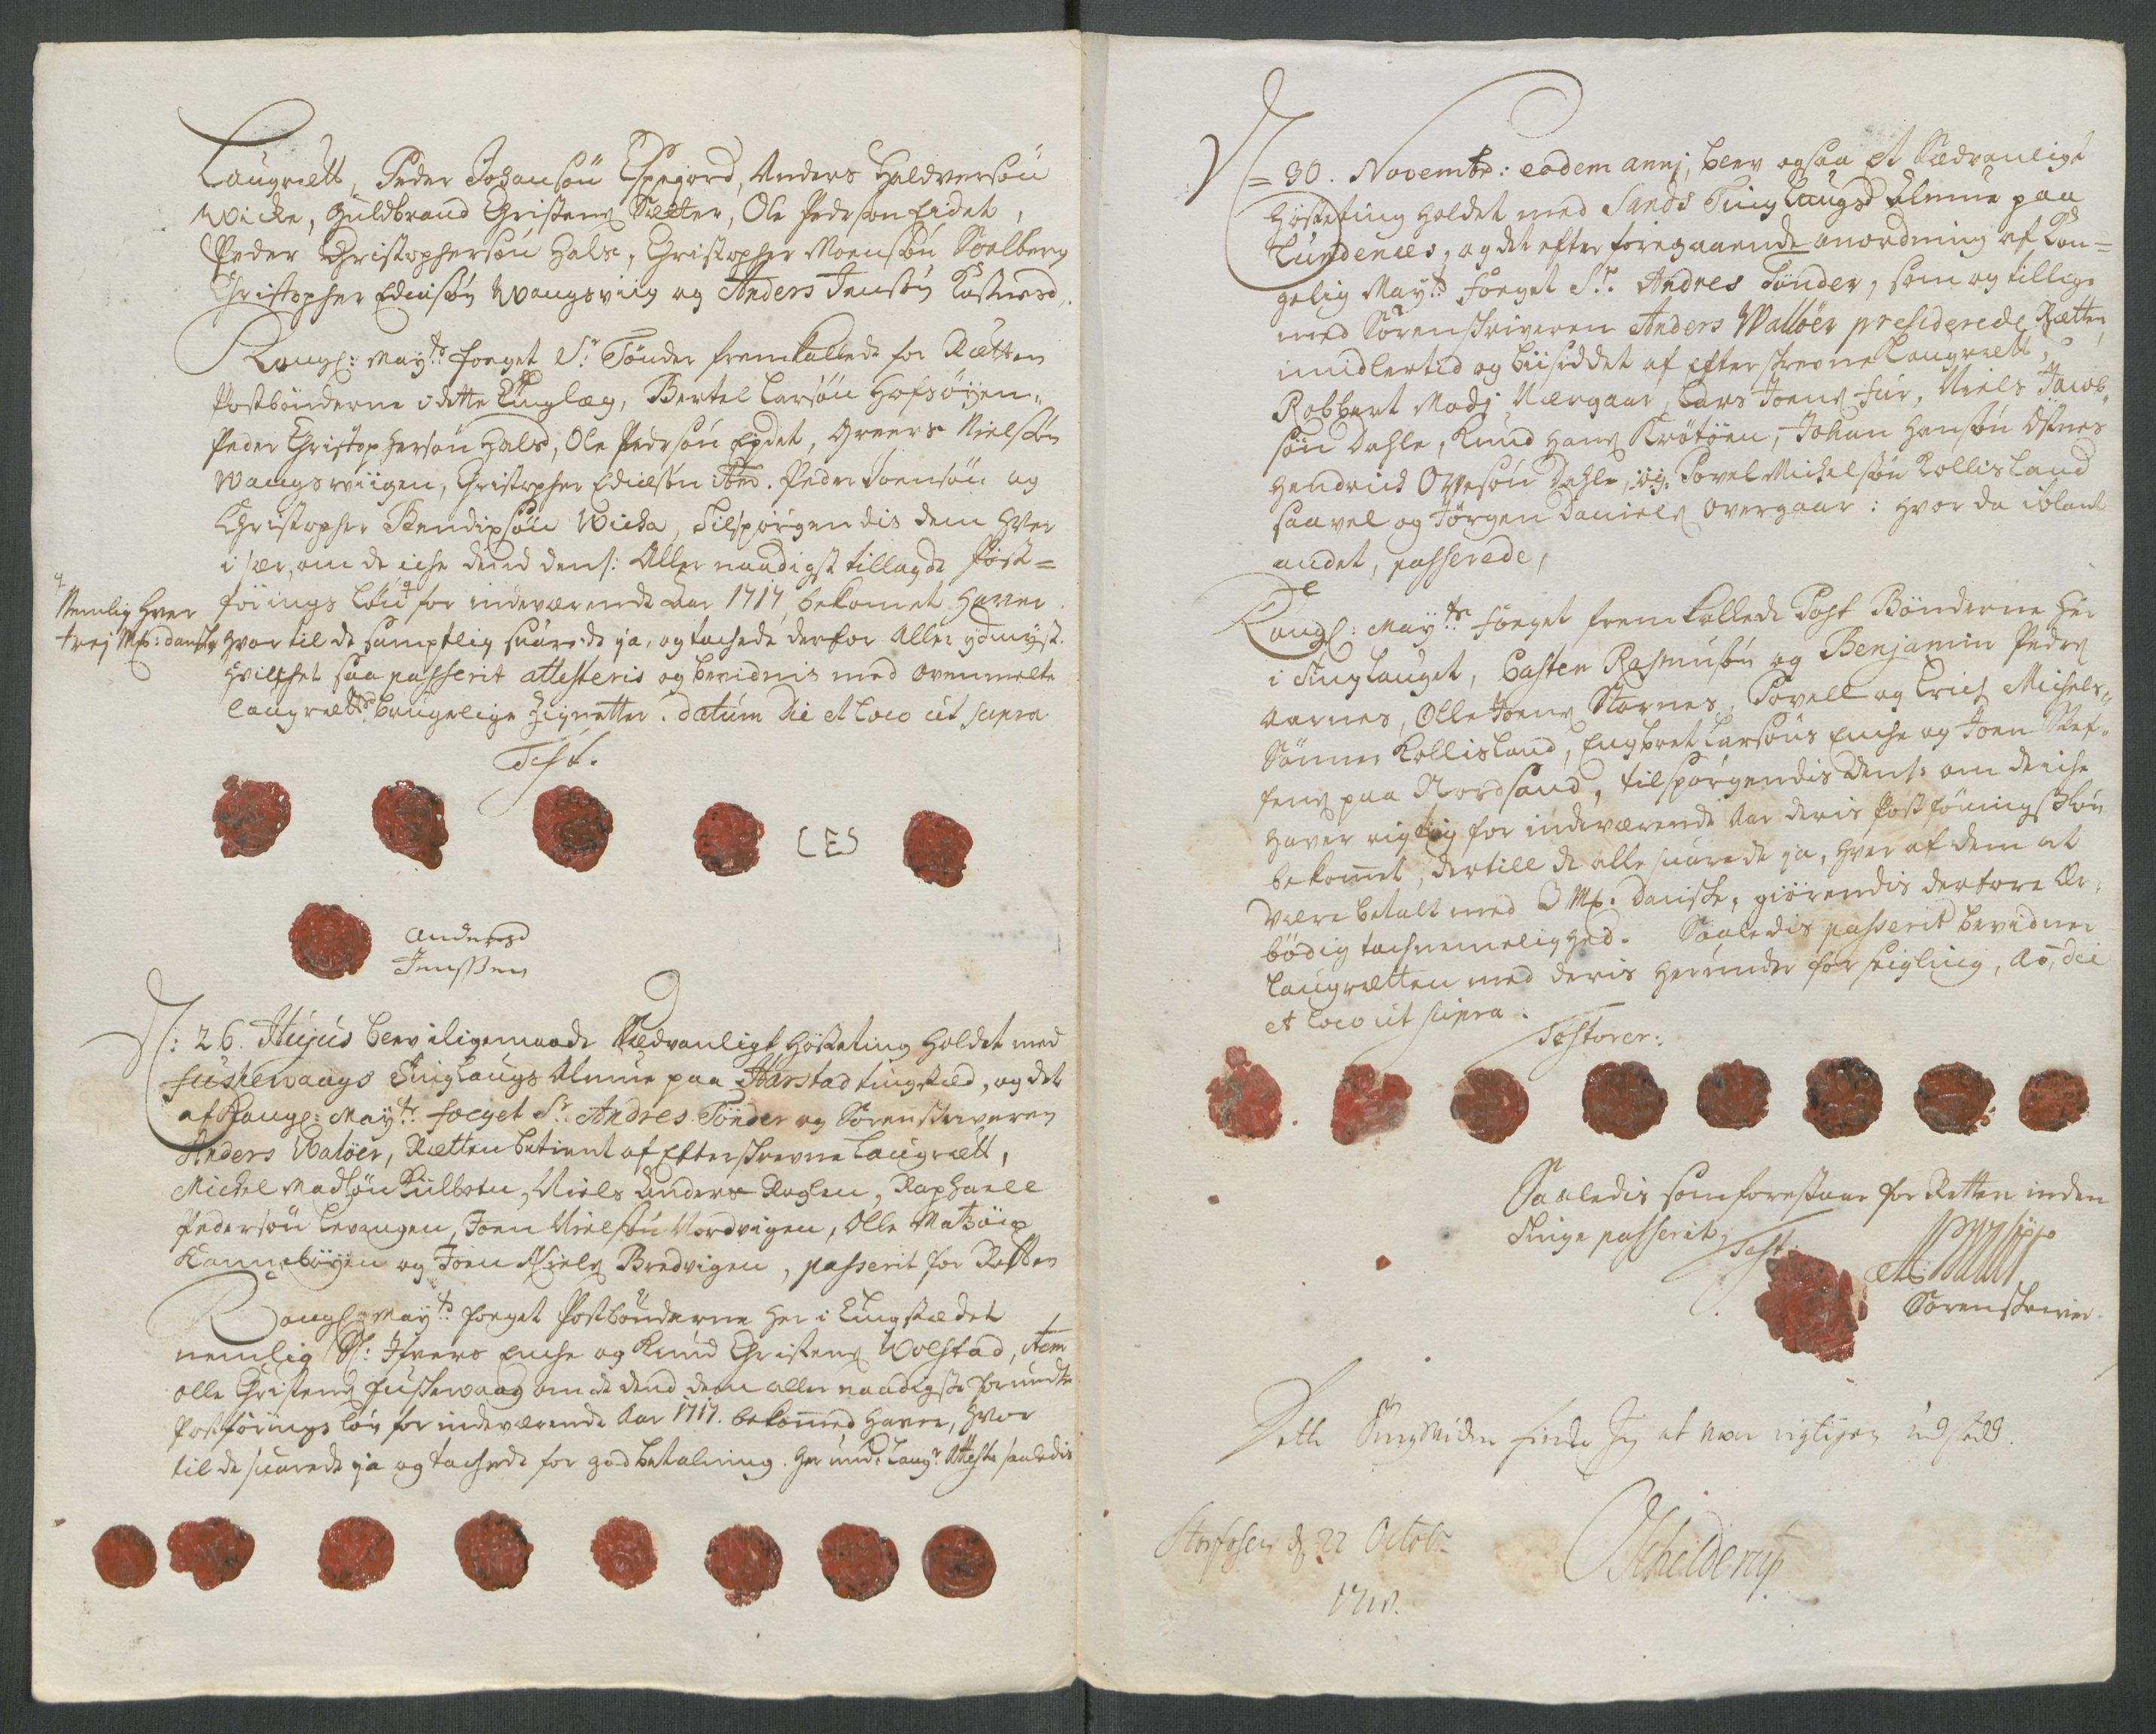 Laugrætt, Peder Johansøn Espegord, Anders Haldversøn
Wicke, Guldbrand Christens Sætter, Ole Pedersøn Eidet,
Peder Christophersøn Hals, Christopher Moensøn Solberg
Christopher Edissøn Wangsviig og Anders Jensøn Kastnesd,
Kongl: May:ts foeget Sr. Tønder fremkallede for Rætten
Postbønderne i dette Tinglag, Bertel Larsøn Hofsøyen,
Peder Christophersøn Hals, Ole Pedersøn Eydet, Greers Nielsøn
Wangswiigen, Christopher Edissøn ibid. Peder Soensøn og
Christopher Bendixsøn Wicka, Tilspørgendis dem hver
i sær, om de iche dend dens: Aller naadigst tillagde Post=
førings løn for indeværende Aar 1717, bekomet haver
Nemlig hver
trej Mk: danske
hvor til de samptlig svarede ja, og tachede derfor Aller ydmygst.
hvilchet saa passerit attesteris og bevidnis med ovenmelte
laugrætts brugelige Zignetter. datum Die et loco ut supra
Test.
LES
Anders
Jenssen
D: 26. Hujus blev iligemaade Sædvanligt Høsteting holdet med
Fuskevaags Tinglaugs Almue paa Harstad tingstæd, og det
af Kongl: May:ts foeget Sr. Andres Tønder og Sorenskriveren
Anders Waløer, Rætten betient af Efterskrevne Laugrætt,
Michel Madsøn Kiilbotn, Niels Anders Roglen, Raphaell
Pedersøn Levangen, Joen Nielsøn Nordvigen, Olle Matzøn
Kannebøyen og Joen Niels Bredvigen, passerit for Retten
Kongl: May:ts foeget Postbønderne her i Tingstædet
nemlig Sl: Ifvers Enche og Knud Christens Wolstad, item
Olle Christens Fuskevaag om de dend dem aller naadigste forundte
Postførings løn for indeværende Aar 1717. bekommed haver, hvor
til de svarede ja og tachede for god betaling. Her und. Laugr. Atteste saaledis
D = 30. Novembr: eodem annj, blev ogsaa et Sædvanligt
Høsteting holdet med Sands Tinglaugs Almue paa
Lundenes, og det efter foregaaende anordning af Kon=
gelig May:ts foeget Sr. Andres Tønder, som og tillige
med Sorenskriveren Anders Walløer presiderede Rætten,
imidlertid og biisiddet af Efterskrevne Laugrætt,
Robbert Madsj Nergaar, Lars Joens Fur, Niels Jacob-
søn Dahle, Knud Hans Krøtøen, Johan Hansøn Østnes
Hendrick Ovesøn Dahle, og Povel Michelsøn Kollisland
saavel og Jørgen Daniels Overgaar: hvor da iblant
andet, passerede,
Kongl: May:ts foeget fremkallede Post Bønderne her
i Tinglauget, Casten Rasmusøn og Benjamin Peders
Aarnes, Olle Joens Stornes, Povell og Erich Michels-
Sønner Kollisland, Engbret Larsøns Enche og Joen Stef-
fens paa Nordsand, tilspørgendis dens: om de iche
haver rigtig for indeværende Aar deris Postførings løn
bekommet, dertill de alle svarede ja, hver af dem at
være betalt med 3 Mk: danske, giørendis derfore Ær-
bødig tachnemelighed. Saaledis passerit bevidner
Laugretten med deris herunder forseigling, Ao, die
et loco ut supra.
Testorer:
Saaledis som forestaar for Retten inden
Tinge passerit,
Test.
Sorenskriver.
Dette Tingsvidne finder Jeg at være rigtigen udstedd.
Storfosen d 22 Octobr
OSchelderup